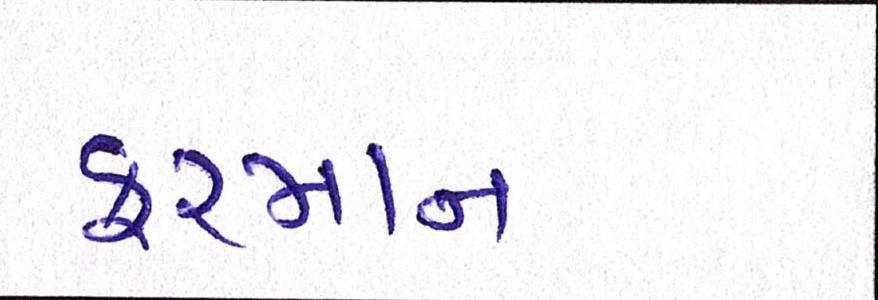 ફરમાન